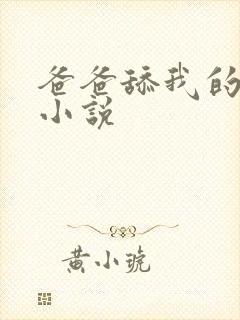 爸爸舔我的
小说
黄小琥